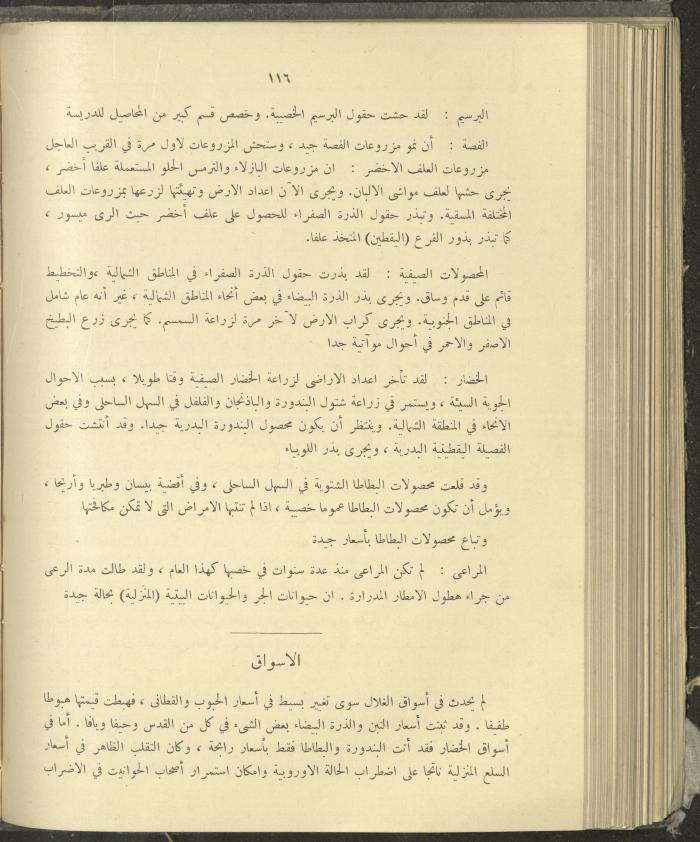 ١١٦
البرسيم : لقد حشت حقول البرسيم الخصيبة. وخصص قسم كبير من المحاصيل للدريسة
الفصة : أن نمو مزروعات الفصة جيد ، وستحش المزروعات لاول مرة في القريب العاجل
مزروعات العلف الاخضر : ان مزروعات البازلاء والترمس الحلو المستعملة علفا أخضر ،
يجرى حشها لعلف مواشى الالبان. ويجرى الآن اعداد الارض وتهيئتها لزرعها بمزروعات العلف
المختلفة المسقية. وتبذر حقول الذرة الصفراء للحصول على علف أخضر حيث الرى ميسور ،
كما تبذر بذور القرع (اليقطين) المتخذ علفا.
المحصولات الصيفية : لقد بذرت حقول الذرة الصفراء في المناطق الشمالية ،والتخطيط
قائم على قدم وساق. ويجرى بذر الذرة البيضاء في بعض أنحاء المناطق الشمالية ، غير أنه عام شامل
في المناطق الجنوبية. ويجرى كراب الارض لآخر مرة لزراعة السمسم. كما يجرى زرع البطيخ
الاصفر والاحمر في أحوال موآتية جدا
الخضار : لقد تأخر اعداد الاراضى لزراعة الخضار الصيفية وقتا طويلا ، بسبب الاحوال
الجوية السيئة ، ويستمر في زراعة شتول البندورة والباذنجان والفلفل في السهل الساحلى وفي بعض
الانحاء في المنطقة الشمالية. وينتظر أن يكون محصول البندورة البدرية جيدا. وقد أنتشت حقول
الفصيلة اليقطينية البدرية ، ويجرى بذر اللوبياء
وقد قلعت محصولات البطاطا الشتوية في السهل الساحلى ، وفي أقضية بيسان وطبريا وأريحا ،
ويؤمل أن تكون محصولات البطاطا عموما خصيبة ، اذا لم تنتبها الامراض التى لا تمكن مكافحتها
وتباع محصولات البطاطا بأسعار جيدة
المراعى : لم تكن المراعى منذ عدة سنوات في خصبها كهذا العام ، ولقد طالت مدة الرعى
من جراء هطول الامطار المدرارة . ان حيوانات الجر والحيوانات البيتية (المنزلية) بحالة جيدة
الاسواق
لم يحدث في أسواق الغلال سوى تغيير بسيط في أسعار الحبوب والقطانى ، فهبطت قيمتها هبوطا
طفيفا . وقد ثبتت أسعار التبن والذرة البيضاء بعض الشىء في كل من القدس وحيفا ويافا . أما في
أسواق الخضار فقد أتت البندورة والبطاطا فقط بأسعار رابحة ، وكان التقلب الظاهر في أسعار
السلع المنزلية ناتجا على اضطراب الحالة الاوروبية وامكان استمرار أصحاب الحوانيت في الاضراب